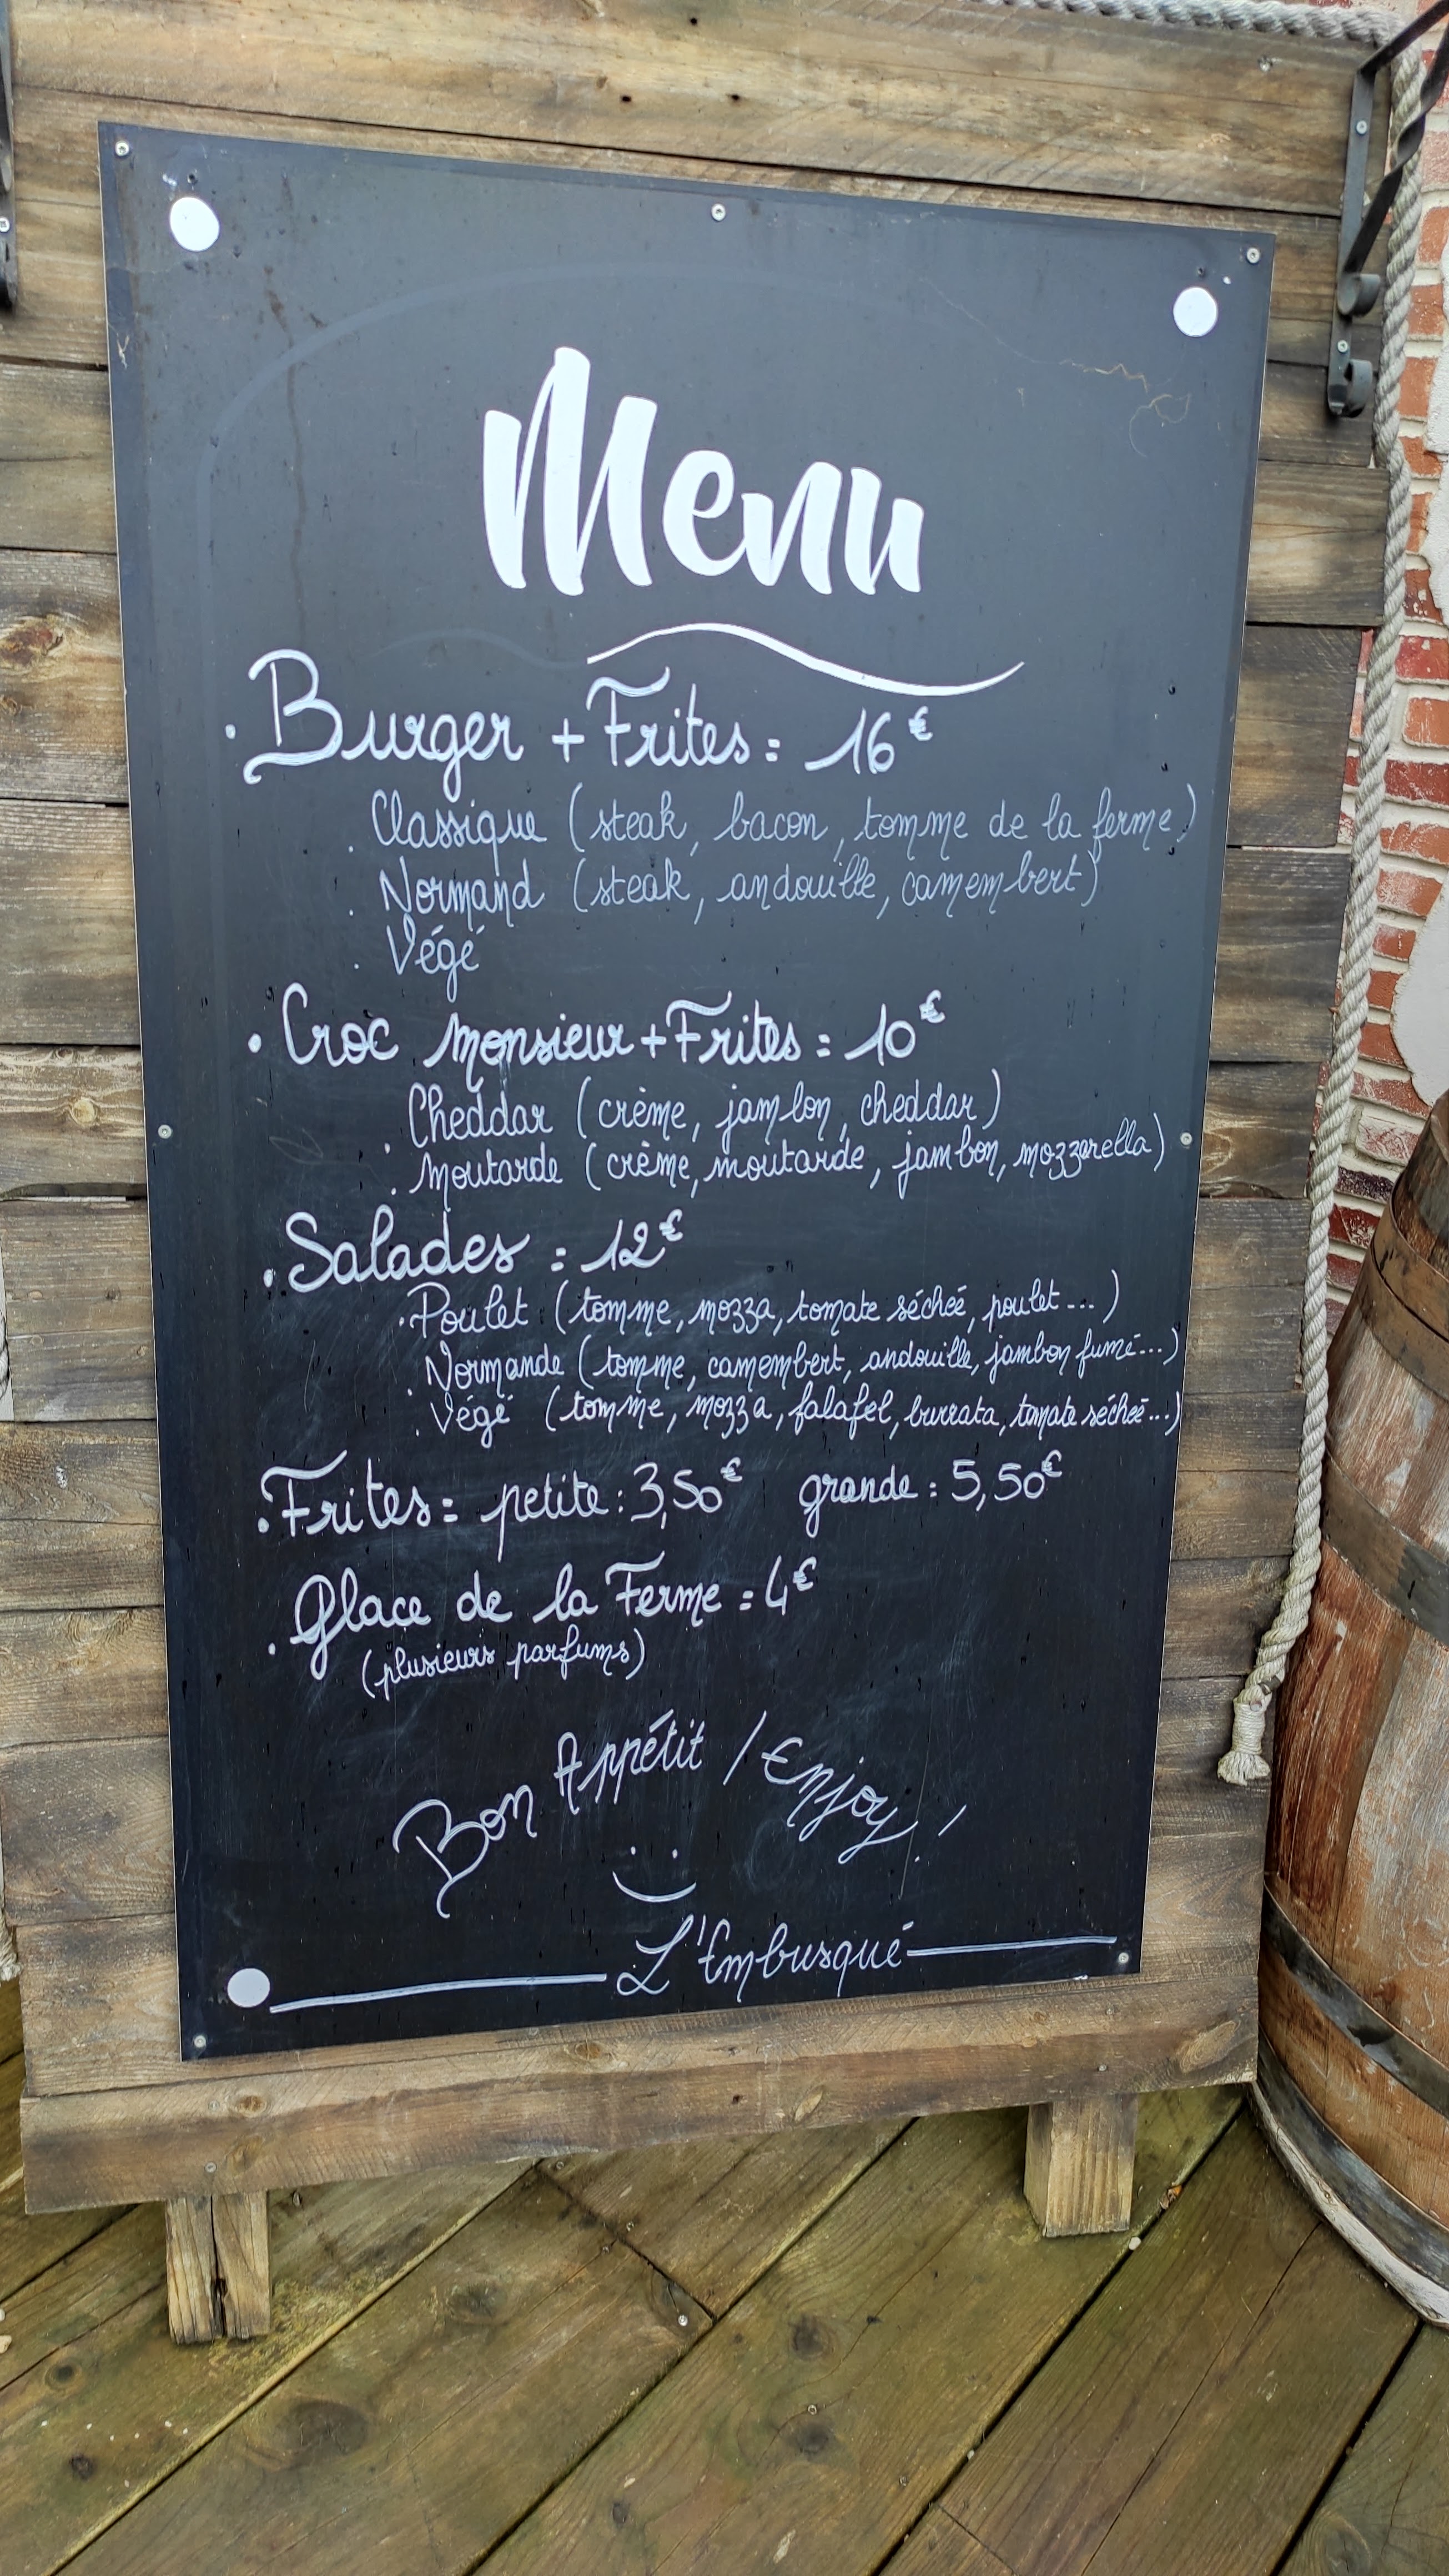 Menu
. Burger + Frites = 16€
. Classique (steak, bacon, tomme de la ferme)
. Normand (steak, andouille, camembert)
. Végé
. Croc monsieur + Frites = 10€
. Cheddar (crème, jambon, cheddar)
. Moutarde (crème, moutarde, jambon, mozzarella)
. Salades = 12€
. Poulet (tomme, mozza, tomate séchée, poulet...)
. Normande (tomme, camembert, andouille, jambon fumé...)
. Végé (tomme, mozza, falafel, burrata, tomate séchée...)
. Frites = petite : 3,50€ grande = 5,50€
. Glace de la Ferme = 4€
(plusieurs parfums)
Bon Appétit / Enjoy !
L'Embusqué